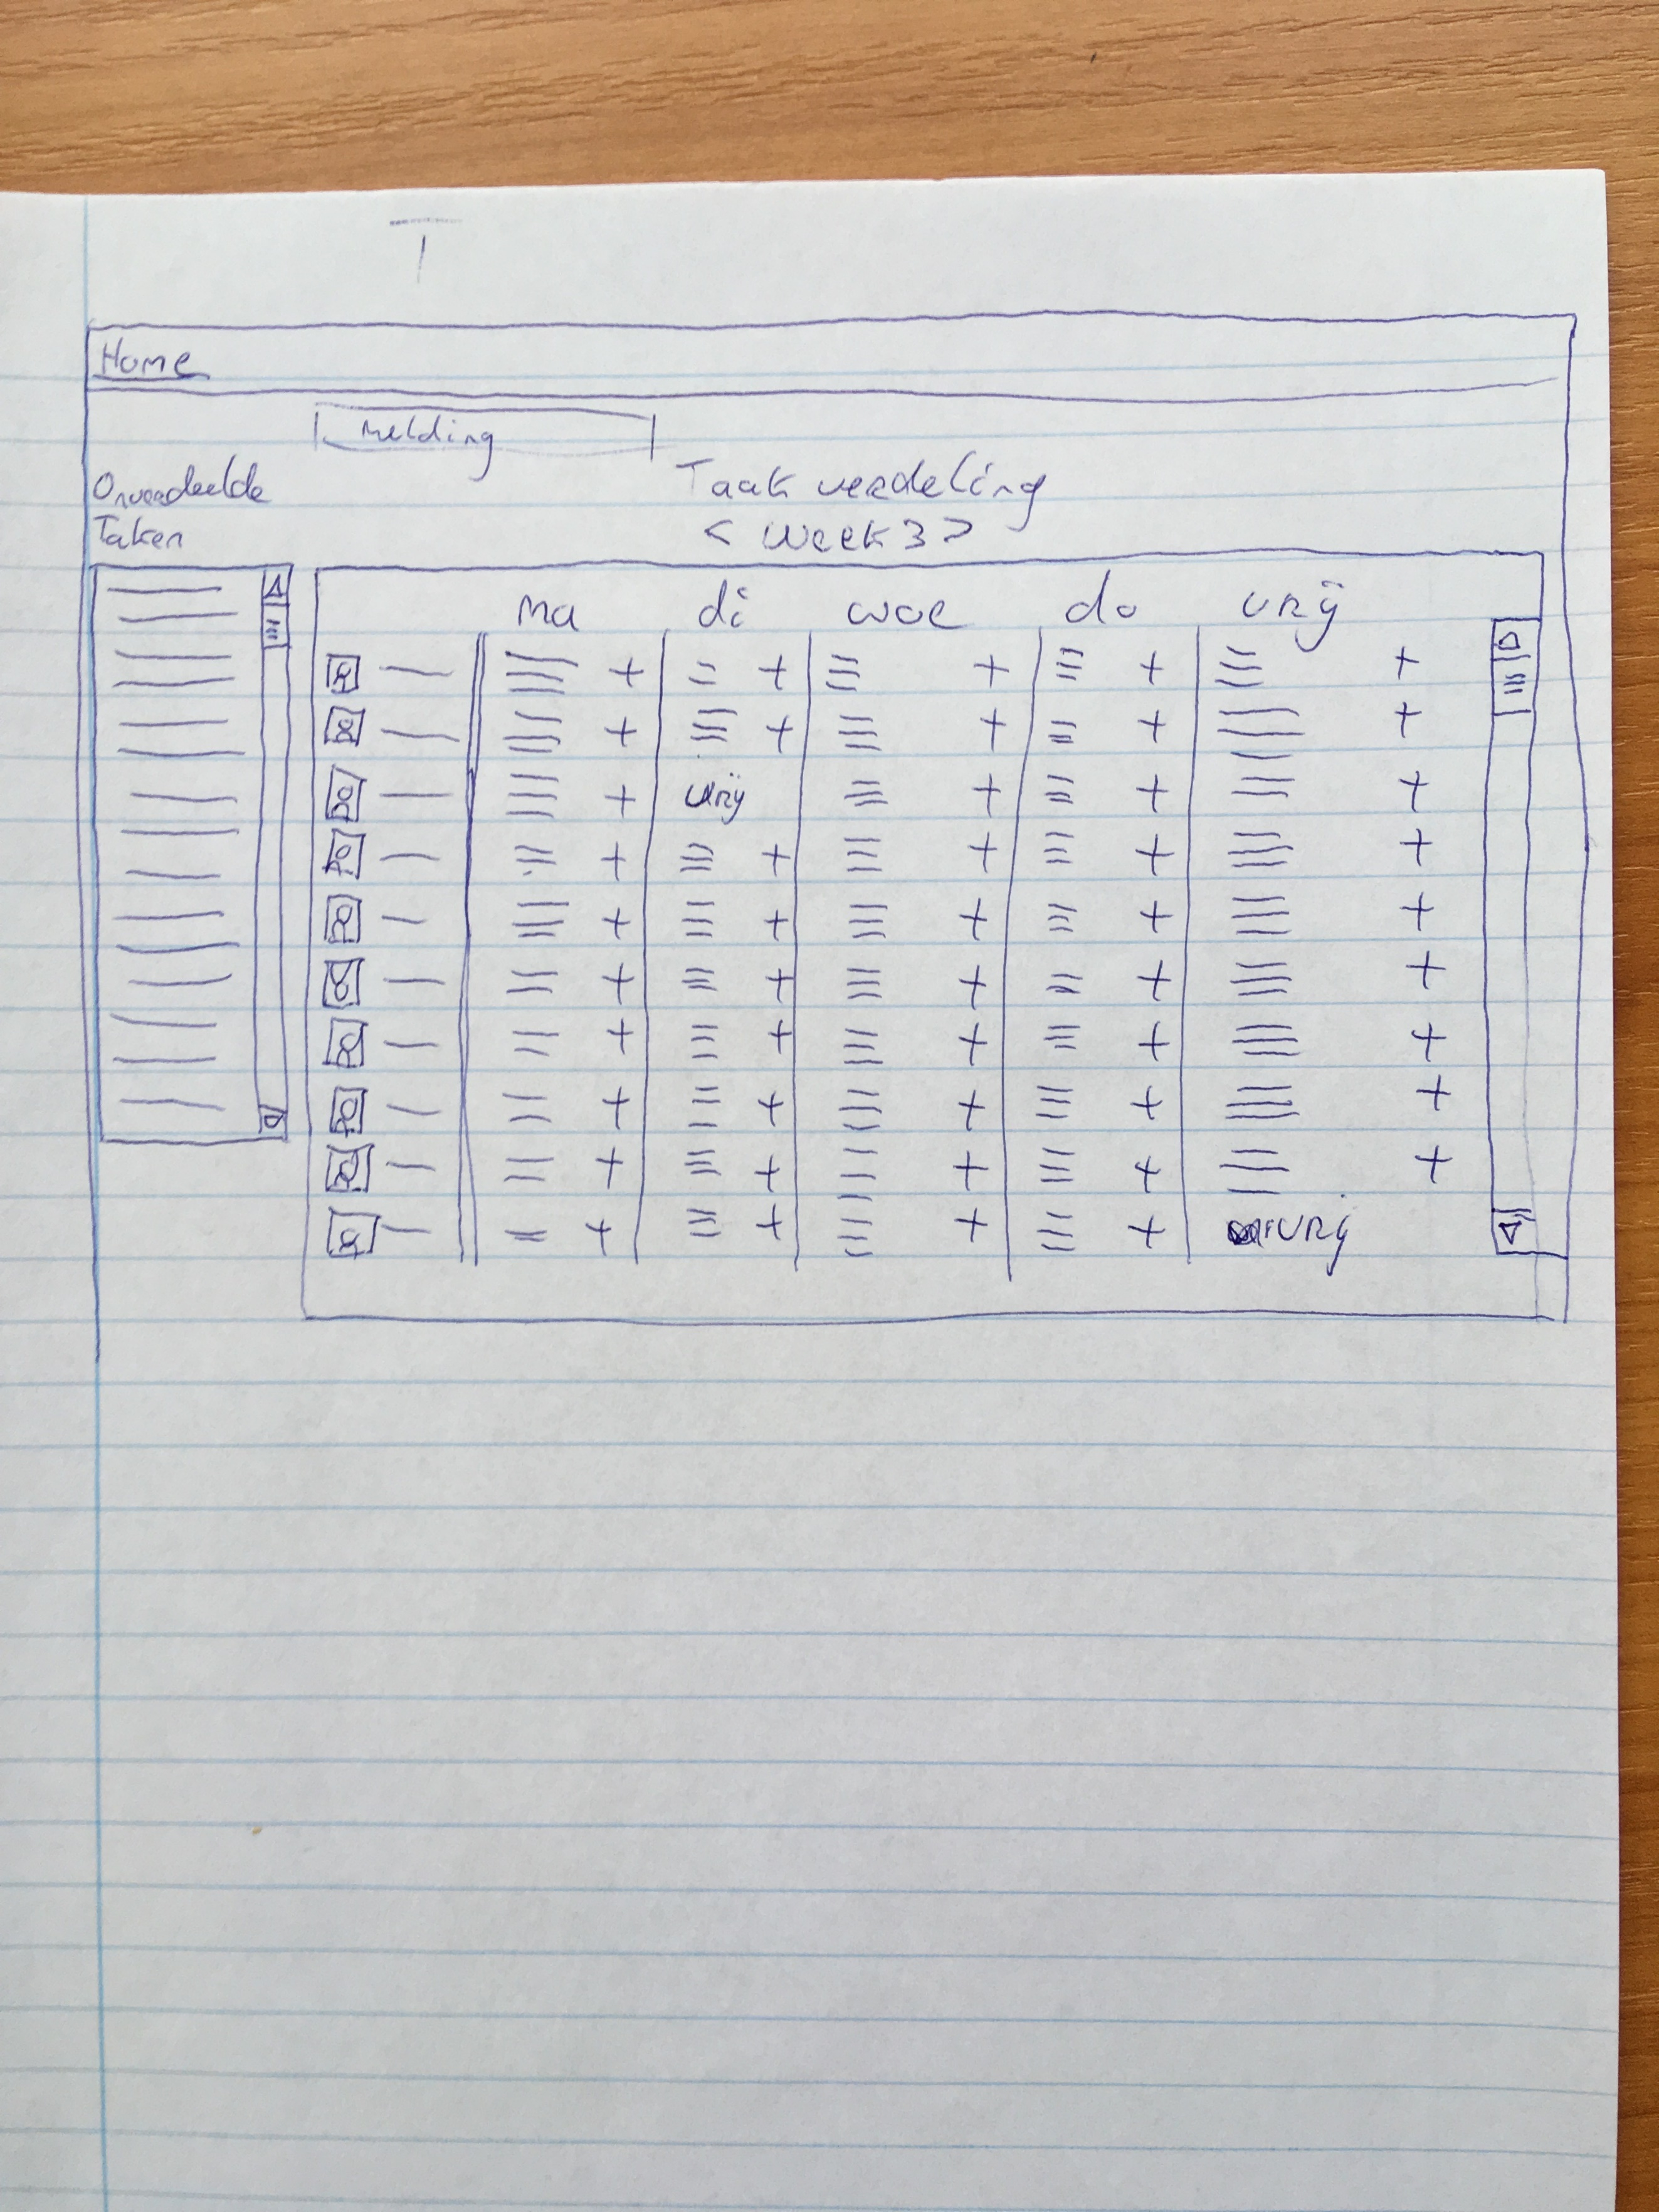 Home
melding
Onverdeelde
Taken
Taak verdeling
< Week 3 >
ma di woe do vrij
+ + + + +
+ + + + +
+ vrij + + +
+ + + + +
+ + + + +
+ + + + +
+ + + + +
+ + + + +
+ + + + +
+ + + + vrij